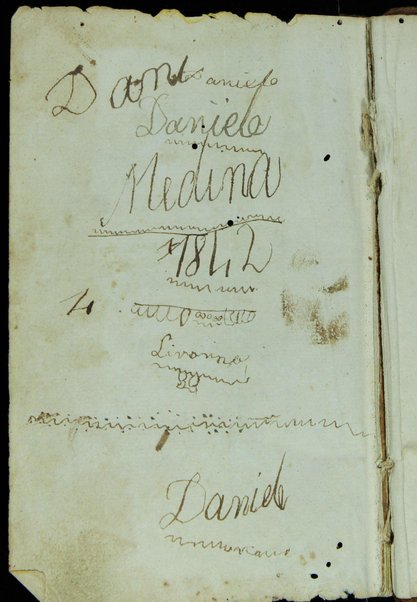 Dani Daniele
Daniele
Medina
1842
Livorno
Daniele